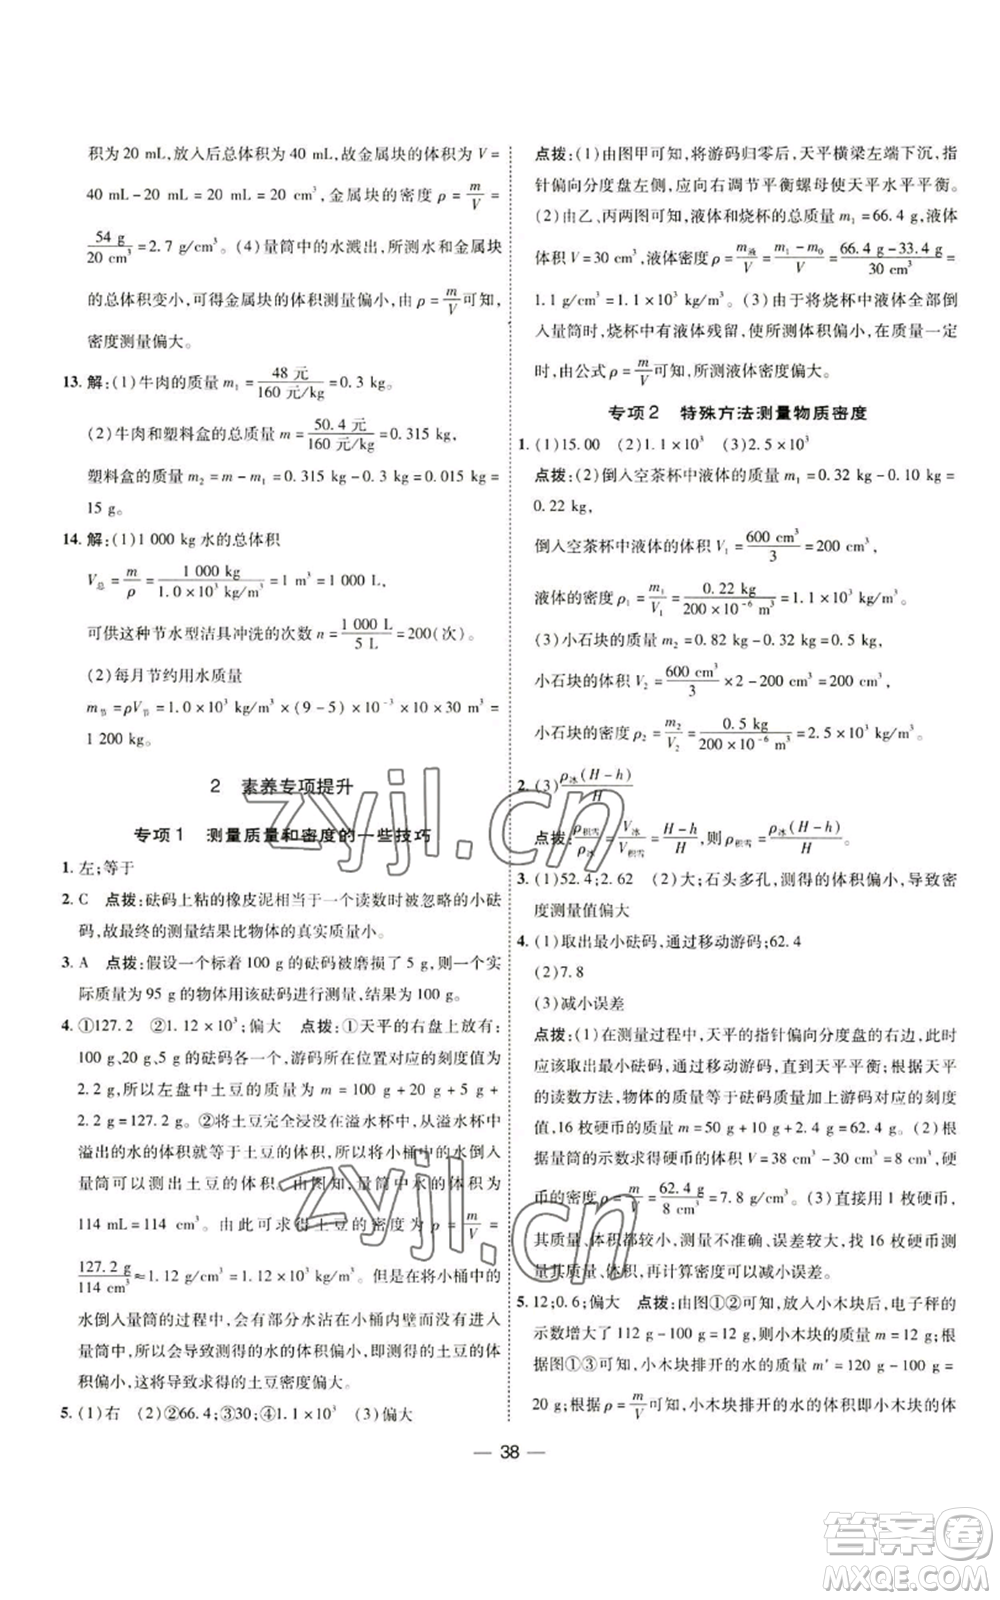 积为 20 mL,放入后总体积为 40 mL,故金属块的体积为 V=
40 mL-20 mL=20 mL=20 cm³,金属块的密度 ρ=m/V=
54 g/20 cm³=2.7 g/cm³。(4)量筒中的水溅出,所测水和金属块
的总体积变小,可得金属块的体积测量偏小,根据 ρ=m/V可知,
密度测量偏大。
13. 解:(1)牛肉的质量 m₁=48 元/160 元/kg=0.3 kg。
(2)牛肉和塑料盒的总质量 m=50.4 元/160 元/kg=0.315 kg,
塑料盒的质量 m₂=m-m₁=0.315 kg-0.3 kg=0.015 kg=
15 g。
14. 解:(1)1 000 kg 水的总体积
V总=m/ρ=1 000 kg/1.0×10³ kg/m³=1 m³=1 000 L,
可供这种节水型洁具冲洗的次数 n=1 000 L/5 L=200(次)。
(2)每月节约用水质量
m节=ρV节=1.0×10³ kg/m³×(9-5)×10⁻³×10×30 m³=
1 200 kg。
2 素养专项提升
专项1 测量质量和密度的一些技巧
1. 左;等于
2. C 点拨:砝码上粘的橡皮泥相当于一个读数时被忽略的小砝
码,故最终的测量结果比物体的真实质量小。
3. A 点拨:假设一个标着 100 g 的砝码被磨损了 5 g,则一个实
际质量为 95 g的物体用该砝码进行测量,结果为 100 g。
4. ①127.2 ②1.12×10³;偏大 点拨:①天平的右盘上放有:
100 g、20 g、5 g 的砝码各一个,游码所在位置对应的刻度值为
2.2 g,所以左盘中土豆的质量为 m=100 g+20 g+5 g+
2.2 g=127.2 g。②将土豆完全浸没在溢水杯中,从溢水杯中
溢出的水的体积就等于土豆的体积,所以将小桶中的水倒入
量筒可以测出土豆的体积。由图知,量筒中水的体积为
114 mL=114 cm³。由此可求得土豆的密度为 ρ=m/V=
127.2 g/114 cm³≈1.12 g/cm³=1.12×10³ kg/m³。但是在将小桶中的
水倒入量筒的过程中,会有部分水沾在小桶内壁而没有倒入
其中,所以会导致测得的水的体积偏小,即测得的土豆的体
积偏小,这将会导致求得的土豆密度偏大。
5. (1)右 (2)②66.4;③30;④1.1×10³ (3)偏大
点拨:(1)由图甲可知,将游码归零后,天平横梁左端下沉,指
针偏向分度盘左侧,应向右调节平衡螺母使天平水平平衡。
(2)由乙、丙两图可知,液体和烧杯的总质量 m₁=66.4 g,液体
体积 V=30 cm³,液体密度 ρ=m液/V=m₁-m₀/V=66.4 g-33.4 g/30 cm³=
1.1 g/cm³=1.1×10³ kg/m³。(3)由于将烧杯中液体全部倒
入量筒时,烧杯中有液体残留,使所测体积偏小,在质量一定
时,由公式 ρ=m/V可知,所测液体密度偏大。
专项2 特殊方法测量物质密度
1. (1)15.00 (2)1.1×10³ (3)2.5×10³
点拨:(2)倒入空茶杯中液体的质量 m₁=0.32 kg-0.10 kg=
0.22 kg,
倒入空茶杯中液体的体积 V₁=600 cm³/3=200 cm³,
液体的密度 ρ₁=m₁/V₁=0.22 kg/200×10⁻⁶ m³=1.1×10³ kg/m³。
(3)小石块的质量 m₂=0.82 kg-0.32 kg=0.5 kg,
小石块的体积 V₂=600 cm³/3×2-200 cm³=200 cm³,
小石块的密度 ρ₂=m₂/V₂=0.5 kg/200×10⁻⁶ m³=2.5×10³ kg/m³。
2. (3)ρ冰(H-h)/H
点拨:ρ积雪/ρ冰=V冰/V积雪=H-h/H,则 ρ积雪=ρ冰(H-h)/H。
3. (1)52.4;2.62 (2)大;石头多孔,测得的体积偏小,导致密
度测量值偏大
4. (1)取出最小砝码,通过移动游码;62.4
(2)7.8
(3)减小误差
点拨:(1)在测量过程中,天平的指针偏向分度盘的右边,此时
应该取出最小砝码,通过移动游码,直到天平平衡;根据天平
的读数方法,物体的质量等于砝码质量加上游码对应的刻度
值,16 枚硬币的质量 m=50 g+10 g+2.4 g=62.4 g。(2)根
据量筒的示数求得硬币的体积 V=38 cm³-30 cm³=8 cm³,硬
币的密度 ρ=m/V=62.4 g/8 cm³=7.8 g/cm³。(3)直接用 1 枚硬币,
其质量、体积都较小,测量不准确、误差较大,找 16 枚硬币测
量其质量、体积,再计算密度可以减小误差。
5. 12;0.6;偏大 点拨:由图①②可知,放入小木块后,电子秤的
示数增大了 112 g-100 g=12 g,则小木块的质量 m=12 g;根
据图①③可知,小木块排开的水的质量 m'=120 g-100 g=
20 g,根据 ρ=m/V可知,小木块排开的水的体积即小木块的体
— 38 —
zyjl.cn
zyjl.cn
答案圈
MXQE.COM